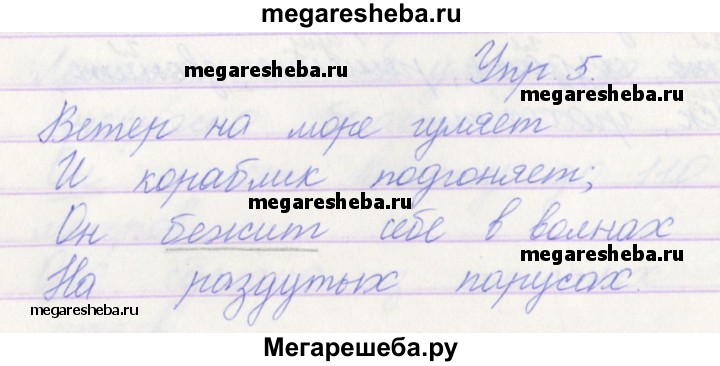 megaresheba.ru
Упр. 5.
megaresheba.ru
megaresheba.ru
Ветер на море гуляет
megaresheba.ru
И кораблик подгоняет;
megaresheba.ru
Он бежит себе в волнах
megaresheba.ru
На раздутых парусах.
megaresheba.ru
Мегарешеба.ру